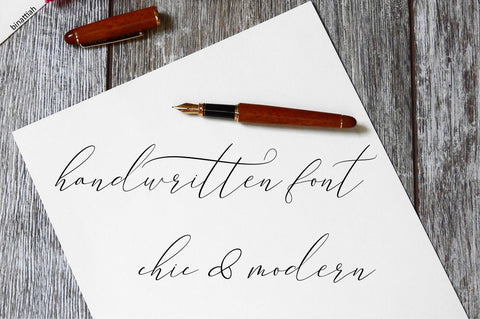 binattiah
handwritten font
chic & modern